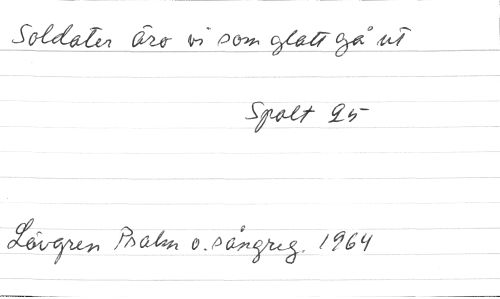 Soldater äro vi som glatt gå ut
Spalt 25
Lövgren Psalm o. sångreg. 1964